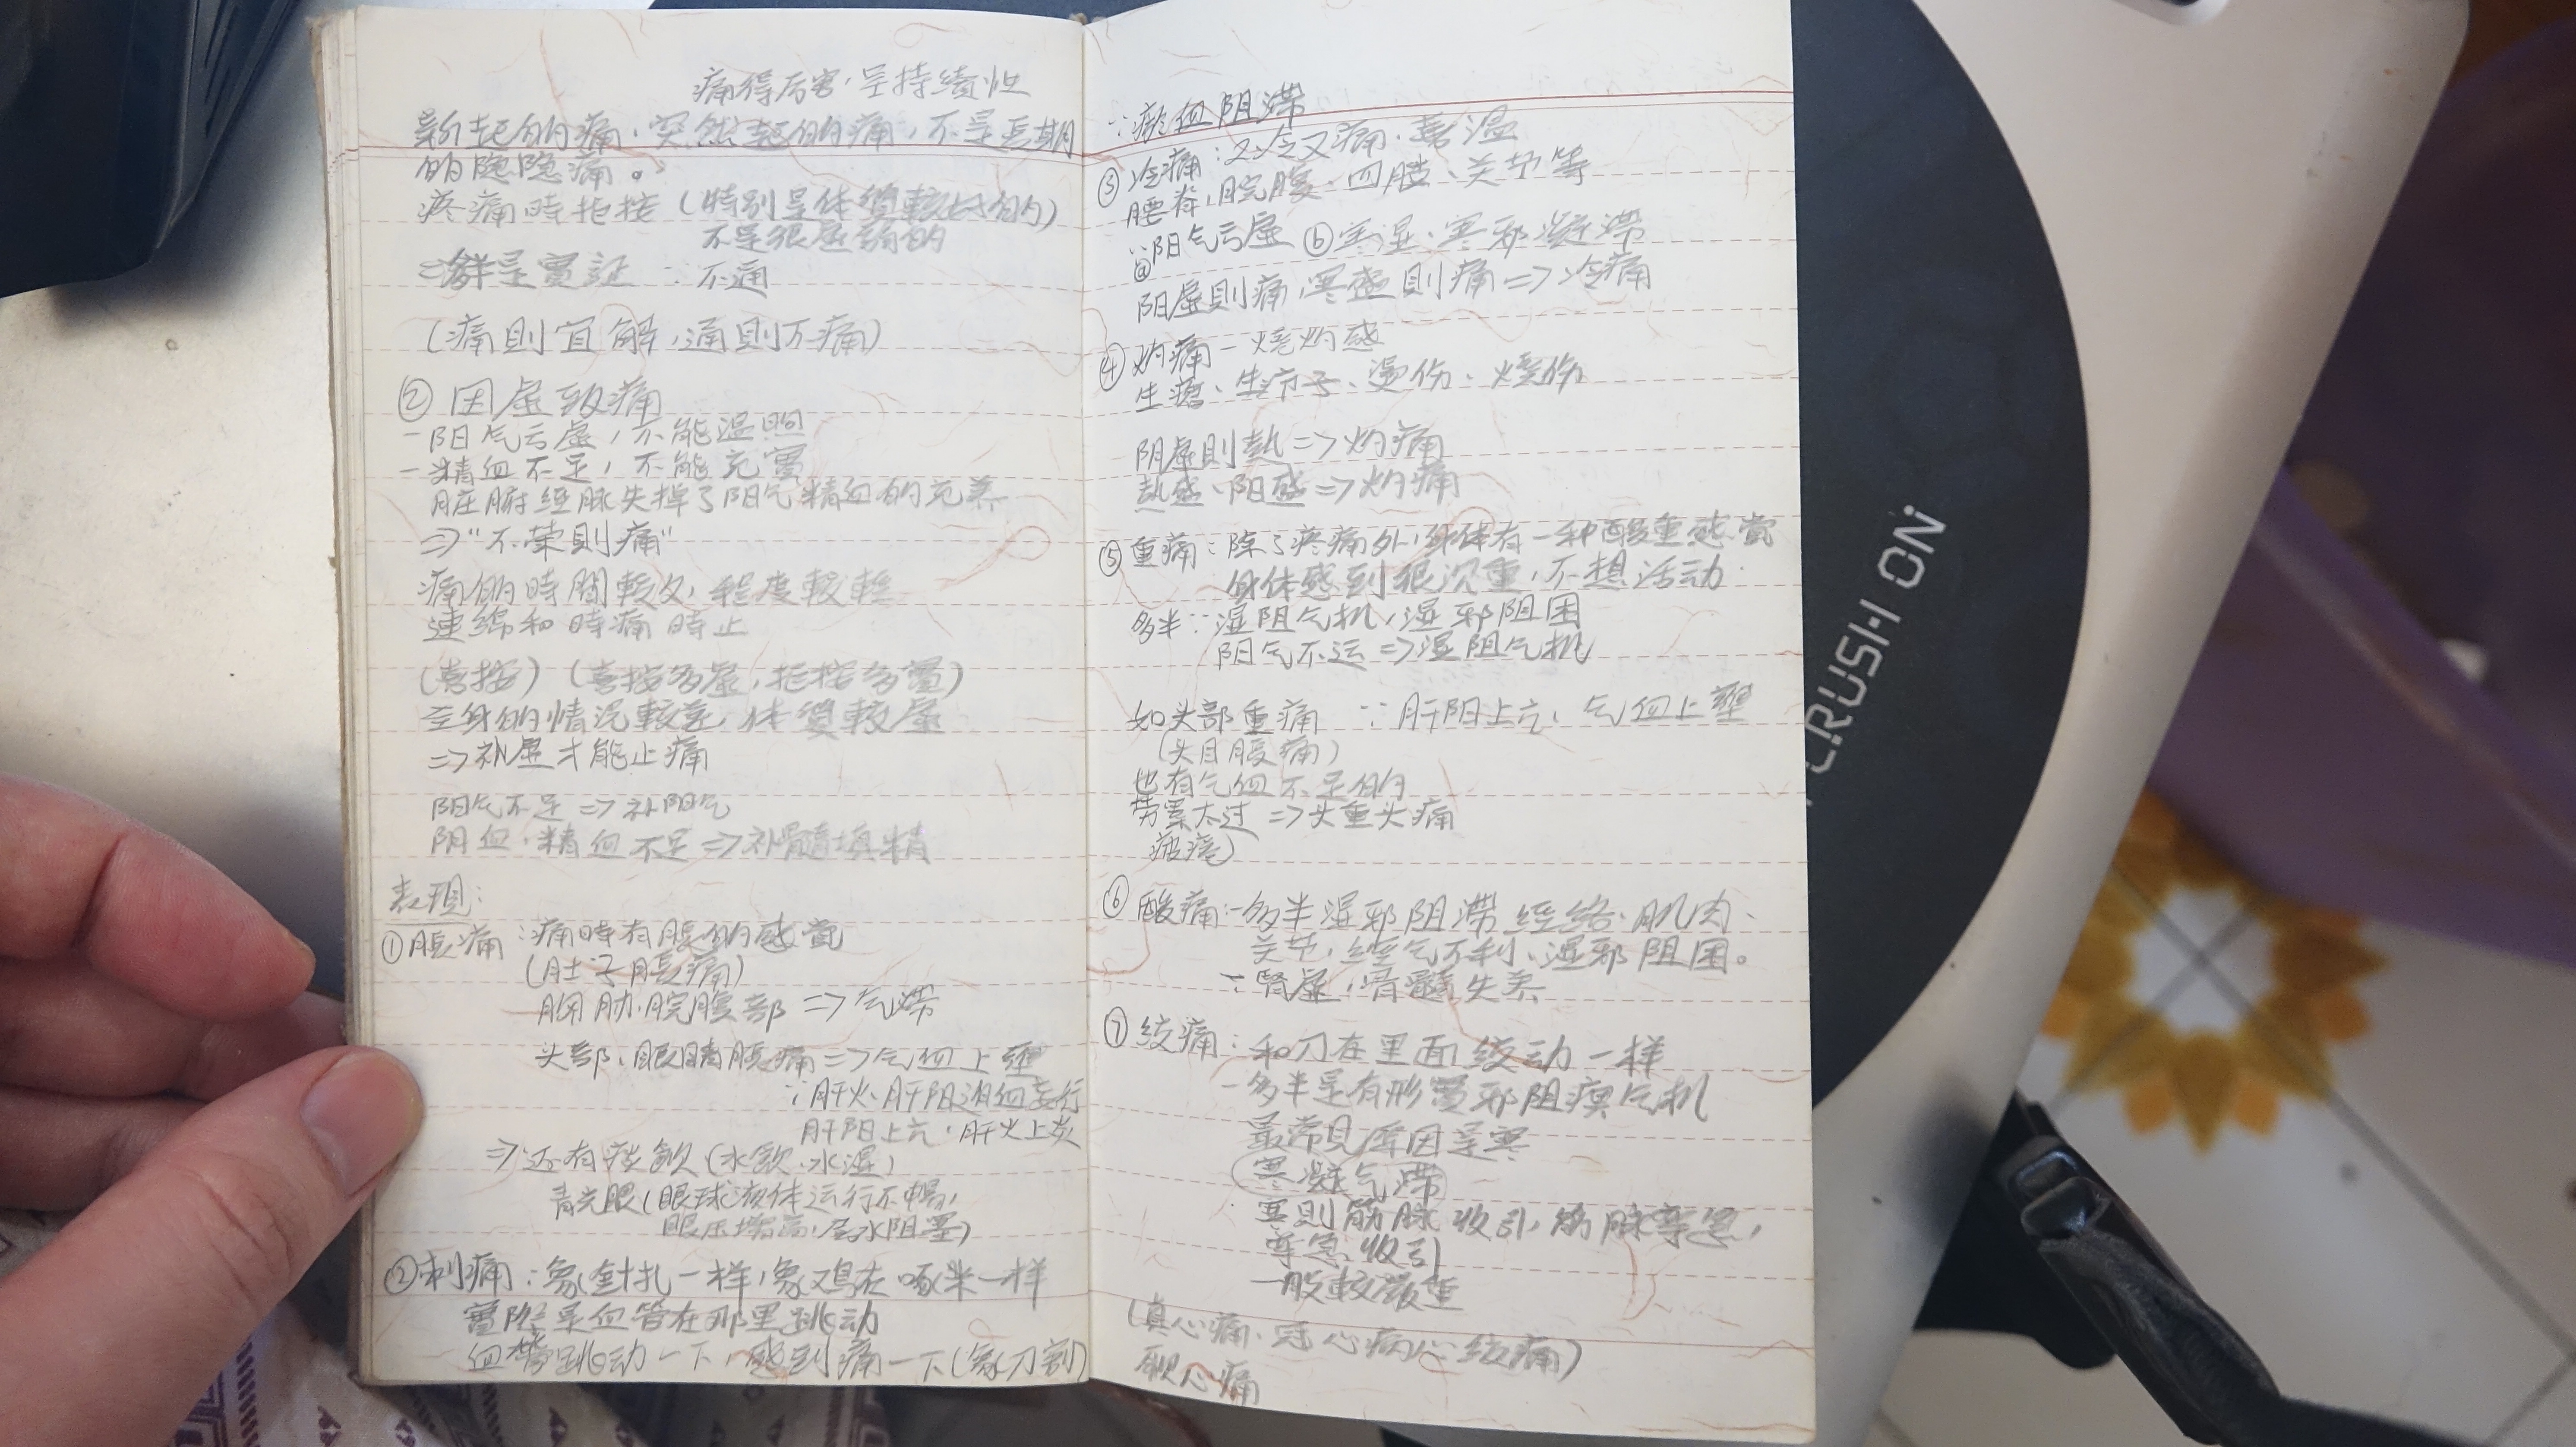 痛得厉害，呈持續性
新起的痛，突然起的痛，不是長期
的隐隐痛。
疼痛時拒按（特别是体質較好的）
不是很虚弱的
實証 ∵不通
（痛則宜解，通則不痛）
② 因虚致痛
－阳气亏虚，不能温煦
－精血不足，不能充實
脏腑經脉失掉了阳气精血的充养
⇒“不荣則痛”
痛的時間較久，程度較輕
連綿和時痛時止
（喜按）（喜按多虚，拒按多實）
全身的情况較差，体質較虚
⇒补虚才能止痛
阳气不足⇒补阳气
阴血、精血不足⇒补髓填精
表現：
①脹痛：痛時有脹的感覺
（肚子脹痛）
胸肋、脘腹部⇒气滞
头部、眼睛脹痛⇒气血上壅
∵肝火、肝阳 血妄行
肝阳上亢，肝火上炎
⇒还有痰飲（水飲、水湿）
青光眼（眼球液体运行不暢，
眼压增高，房水阻塞）
②刺痛：象針扎一样，象鸡在啄米一样
實际是血管在那里跳动
血管跳动一下，感到痛一下（象刀割）
∵瘀血阻滞
③冷痛：又冷又痛，喜温
腰脊、脘腹、四肢、关节等
∵ⓐ阳气亏虚 ⓑ寒湿、寒邪凝滞
阳虚則痛，寒盛則痛⇒冷痛
④灼痛－烧灼感
生瘡、生疖子、烫伤、烧伤
阴虚則热⇒灼痛
热盛、阳盛⇒灼痛
⑤重痛：除了疼痛外，身体有一种酸重感覺
身体感到很沉重，不想活动
多半∵湿阻气机，湿邪阻困
阳气不运⇒湿阻气机
如头部重痛 ∵肝阳上亢，气血上壅
（头目脹痛）
也有气血不足的
劳累太过⇒头重头痛
疲倦）
⑥酸痛：－多半湿邪阻滞經络、肌肉、
关节，經气不利，湿邪阻困。
∵腎虚，骨髓失养
⑦绞痛：和刀在里面绞动一样
－多半是有形實邪阻 气机
最常見原因是寒
寒凝气滞
寒則筋脉收引，筋脉牽急，
牽急收引
一般較嚴重
（真心痛、冠心病心绞痛）
厥心痛
CRUSH ON